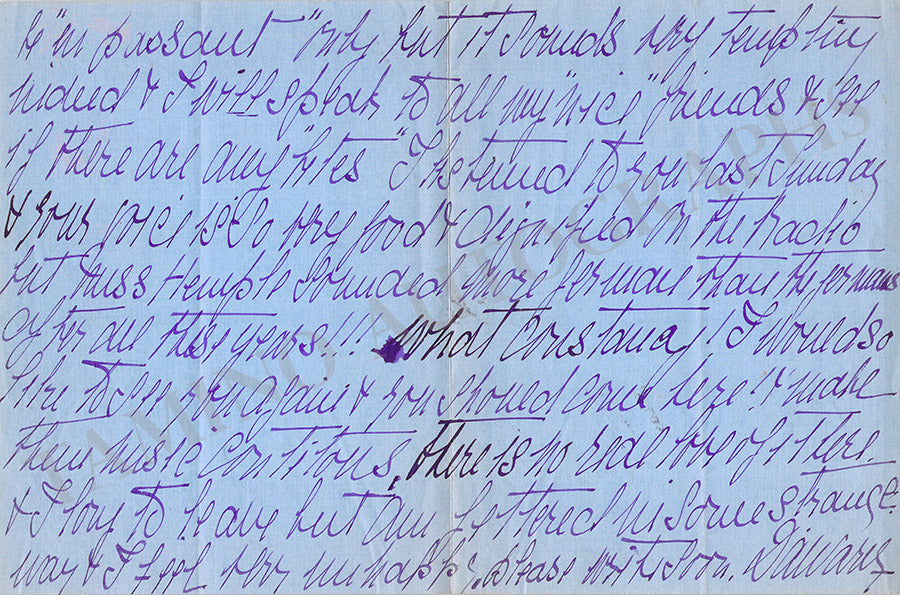 be "en passant" only but it sounds very tempting
indeed & I will speak to all my "nice" friends & see
if there are any "bites" I listened to you last Sunday
& your voice is so very good & dignified on the Radio
but Miss Hemple sounded more german than the germans
after all these years!!! What constancy! I would so
like to see you again & you should come here! & make
them music contitous, there is no real love of it here.
& I long to leave but am fettered in some strange
way & I feel very unhappy. please write soon.
TAMINO AUTOGRAPHS